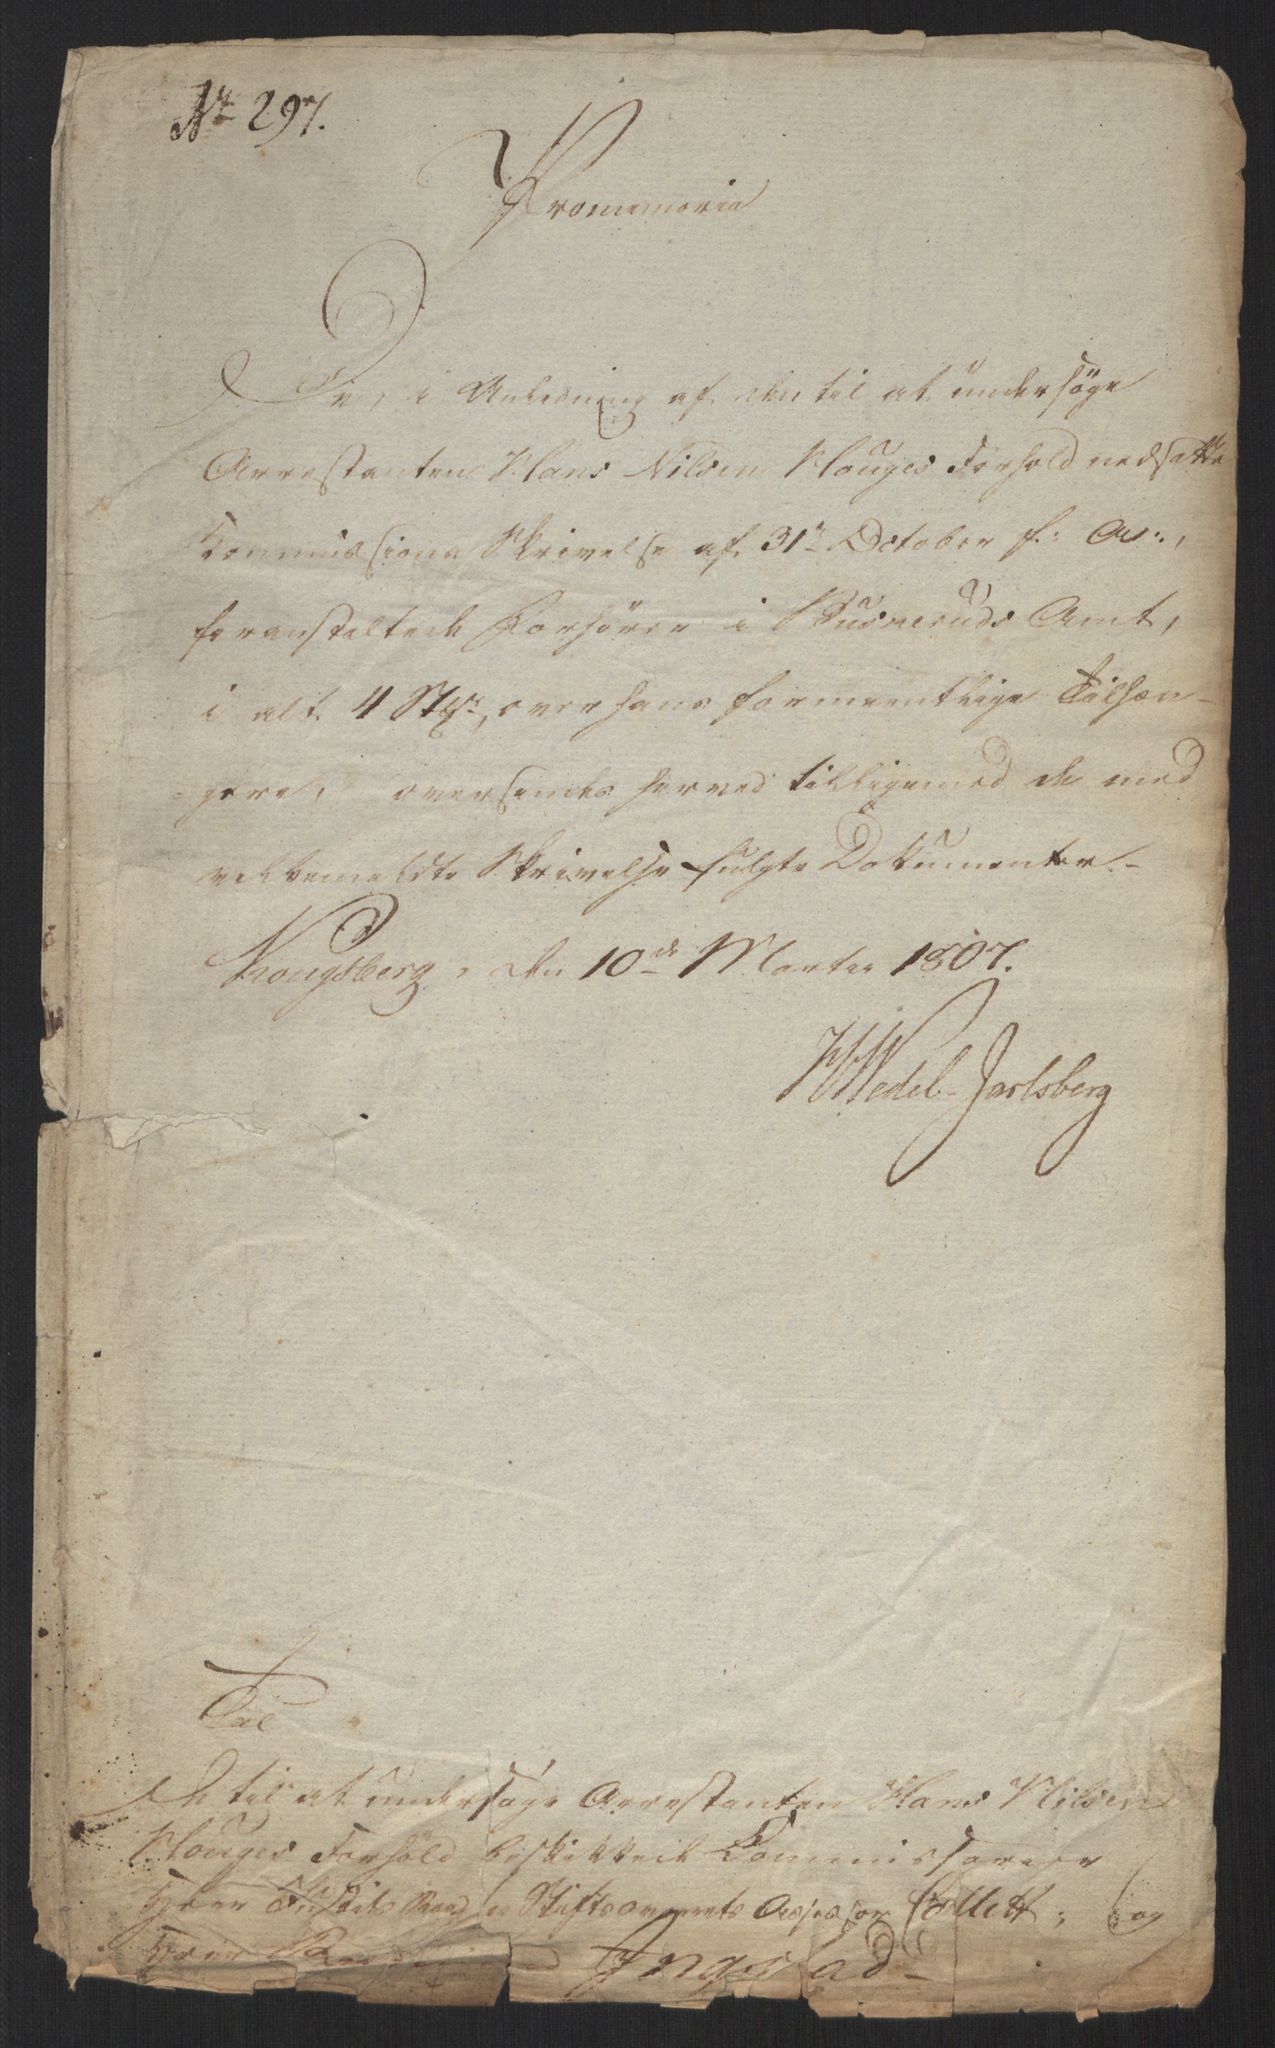 No 297.
Promemoria
De, i Anledning af den til at undersøge
Arrestanten Hans Nilsen Houges Forhold nedsatte
Commissions Skrivelse af 31te October f: A:,
foranstaltede Forhører i Buskeruds Amt,
i alt 4 Stkr, over hans formeentlige Tilhæn-
gere, oversendes herved tilligemed de med
velbemeldte Skrivelse fulgte Dokumenter.
Kongsberg, den 10de Martii 1807.
HWedel-Jarlsberg
Til
De til at undersøge Arrestanten Hans Nilsen
Houges Forhold beskikkede Commissarier
Herr Justits Raad og Stiftsoverrets Assessor Collett, og
Herr Ingstad